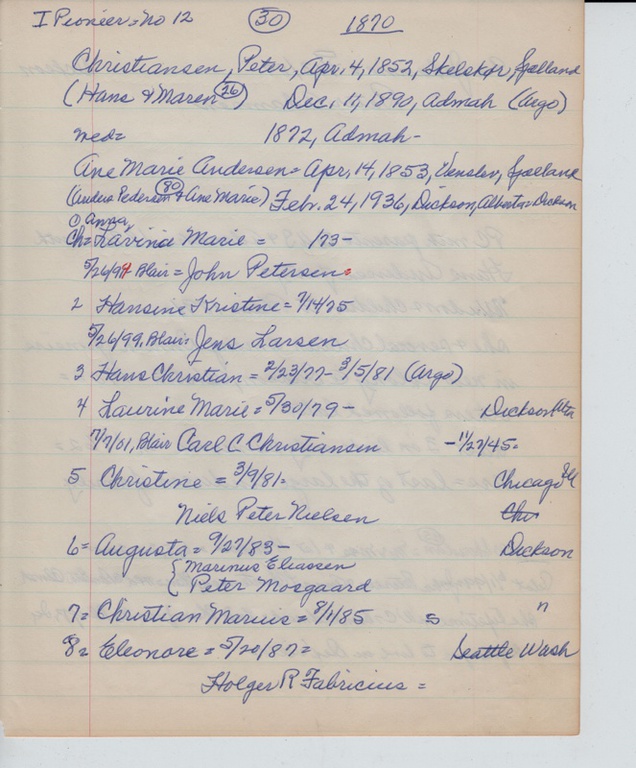 I Pioneer = No 12 (30) 1870
Christiansen, Peter, Apr. 4, 1852, Skelskør, Sjælland
(Hans & Maren (26)) Dec. 11, 1890, Admah (Argo)
med= 1872, Admah-
Ane Marie Andersen = Apr. 14, 1853, Venslev, Sjælland
(Anders Pedersen (80) & Ane Marie) Febr. 24, 1936, Dickson, Alberta = Dickson
Anna,
Ch = Lavina Marie = /73-
5/26/94 Blair = John Petersen=
2 Hansine Kristine = 7/14/75
5/26/99, Blair= Jens Larsen
3 Hans Christian = 2/23/77- 3/5/81 (Argo)
4 Laurine Marie = 5/30/79 - Dickson Alta
7/7/01, Blair Carl C Christiansen -11/27/45=
5 Christine = 3/9/81= Chicago Ill
Niels Peter Nielsen Chi
6 = Augusta = 9/27/83- Dickson
{ Marinus Eliassen
Peter Mosgaard
7 = Christian Marius = 8/1/85 S "
8 = Eleonore = 5/20/87= Seattle Wash
Holger R Fabricius =